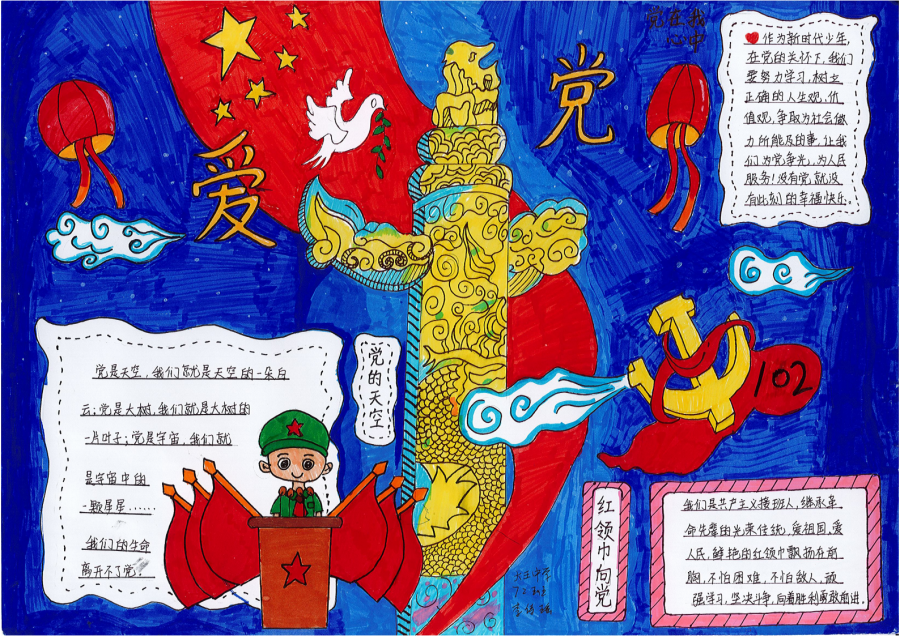 党在我
心中
爱
党
❤作为新时代少年,
在党的关怀下,我们
要努力学习,树立
正确的人生观,价
值观,争取为社会做
力所能及的事,让我
们为党争光,为人民
服务!没有党,就没
有此刻的幸福快乐.
党的天空
党是天空,我们就是天空的一朵白
云;党是大树,我们就是大树的
一片叶子;党是宇宙,我们就
是宇宙中的
一颗星星......
我们的生命
离开不了党;
102
红领巾向党
我们是共产主义接班人,继承革
命先辈的光荣传统,爱祖国,爱
人民,鲜艳的红领巾飘扬在前
胸,不怕困难,不怕敌人,顽
强学习,坚决斗争,向着胜利勇敢前进.